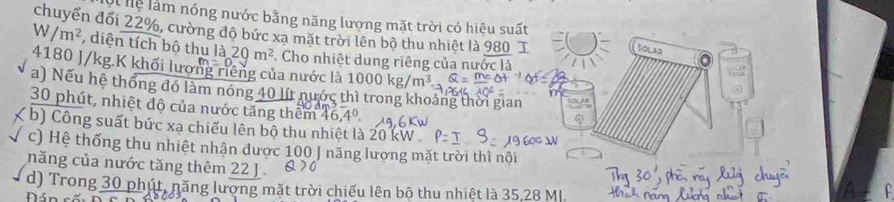 hệ làm nóng nước bằng năng lượng mặt trời có hiệu suất
chuyển đổi 22%, cường độ bức xạ mặt trời lên bộ thu nhiệt là 980 I
W/m², diện tích bộ thu là 20 m². Cho nhiệt dung riêng của nước là
m = D.V
4180 J/kg.K khối lượng riêng của nước là 1000 kg/m³.
a) Nếu hệ thống đó làm nóng 40 lít nước thì trong khoảng thời gian
30 phút, nhiệt độ của nước tăng thêm 46,4⁰.
19,6 KW
b) Công suất bức xạ chiếu lên bộ thu nhiệt là 20 kW P = I. S = 19600 W
c) Hệ thống thu nhiệt nhận được 100 J năng lượng mặt trời thì nội
năng của nước tăng thêm 22 J. Q > 0
d) Trong 30 phút, năng lượng mặt trời chiếu lên bộ thu nhiệt là 35,28 MJ.
SOLAR
SOLAR